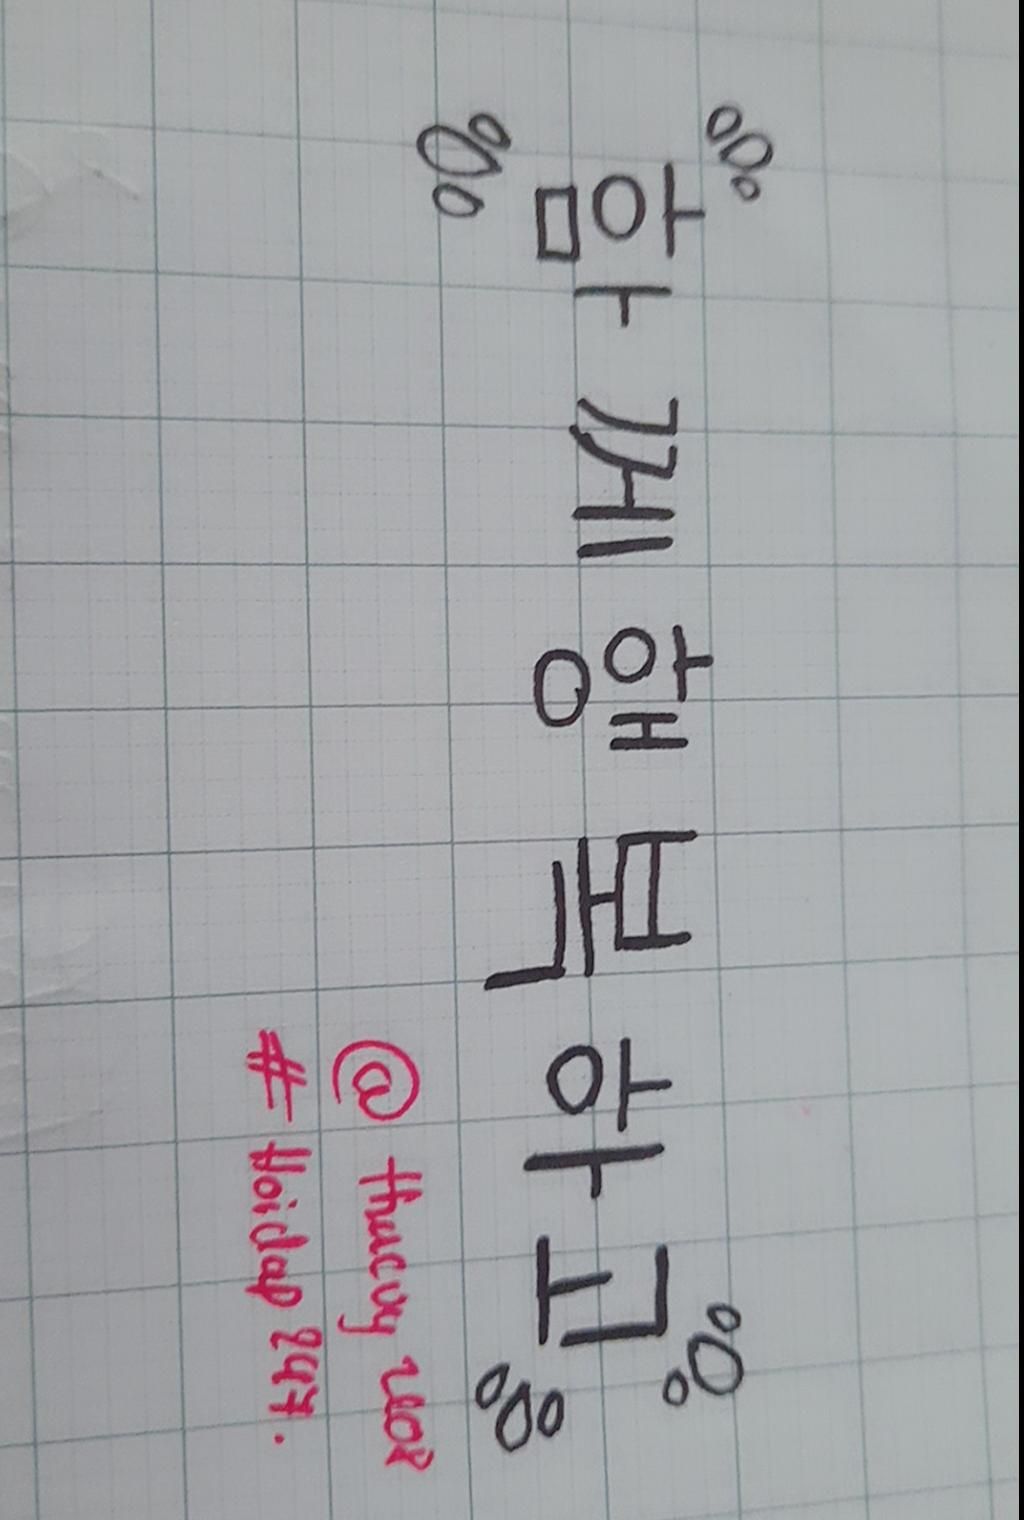 함께 행복하고
@ thucvy
# Hoidap247.